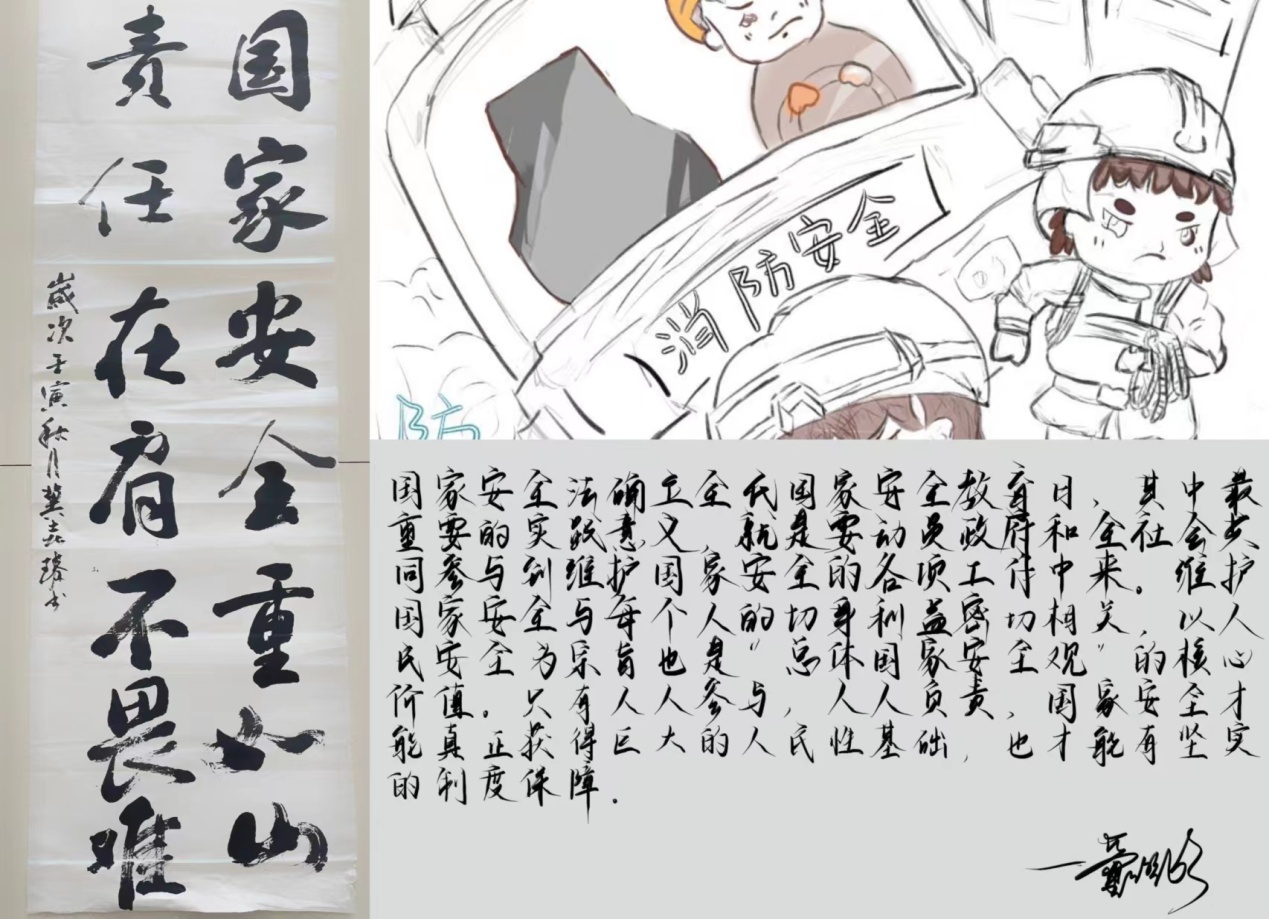 国家安全重如山
责任在肩不畏难
歲次壬寅秋月龚书
消防安全
防
国家安全法确立全民国家安全教育日，其中最
重要的实践意义，就是要动员政府和全社会共
同参与到维护国家安全的各项工作中来。维护
国家安全与每个人的切身利益密切相关，以人
民安全为宗旨也是“总体国家安全观”的核心
价值。只有人人参与，人人负责，国家安全才
能真正获得巨大的人民性基础，也才能有坚实
的制度保障.